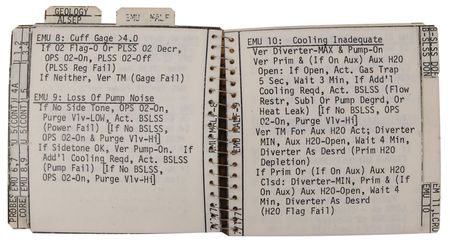 GEOLOGY
ALSEP
EMU MALF
EMU 8: Cuff Gage >4.0
If O2 Flag-O Or PLSS O2 Decr,
OPS O2-On, PLSS O2-Off
(PLSS Reg Fail)
If Neither, Ver TM (Gage Fail)
EMU 9: Loss Of Pump Noise
If No Side Tone, OPS O2-On,
Purge Vlv-LOW, Act. BSLSS
(Power Fail) [If No BSLSS,
OPS O2-On & Purge Vlv-Hi]
If Sidetone OK, Ver Pump-On. If
Add'l Cooling Reqd, Act. BSLSS
(Pump Fail) [If No BSLSS,
OPS O2-On, Purge Vlv-Hi]
EMU 10: Cooling Inadequate
Ver Diverter-MAX & Pump-On
Ver Prim & (If On) Aux H2O
Open: If Open, Act. Gas Trap
5 Sec, Wait 3 Min, If Add'l
Cooling Reqd, Act. BSLSS (Flow
Restr, Subl Or Pump Degrd, Or
Heat Leak) [If No BSLSS,
OPS O2-On, Purge Vlv-Hi]
Ver TM For Aux H2O Act; Diverter
MIN, Aux H2O-Open, Wait 4 Min,
Diverter As Desrd (Prim H2O
Depletion)
If Prim Or (If On) Aux H2O
Clsd: Diverter-MIN, Prim & (If
On) Aux H2O-Open, Wait 4
Min, Diverter As Desrd
(H2O Flag Fail)
EMU 10
EMU 11